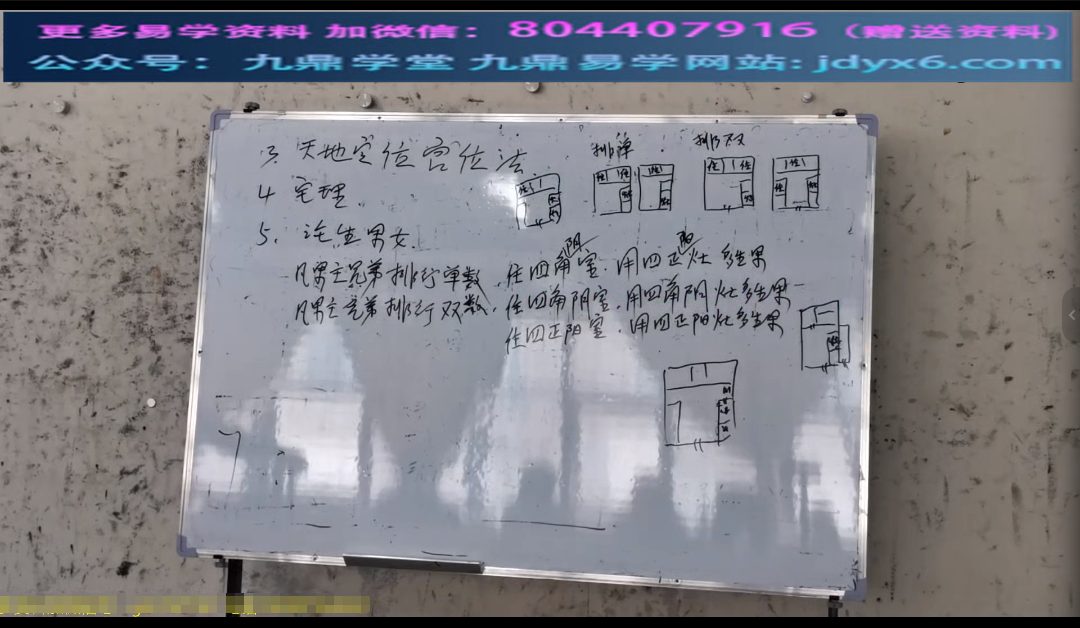 更多易学资料 加微信：804407916（赠送资料）
公众号：九鼎学堂 九鼎易学网站:jdyx6.com
3 天地定位宫位法
排单
排双
4 宅理
5. 注生男女
凡男主兄弟排行单数，住四角阴室，用四正阳灶多生男
凡男主兄弟排行双数，住四角阴室，用四角阴灶多生男
住四正阳室，用四正阳灶多生男